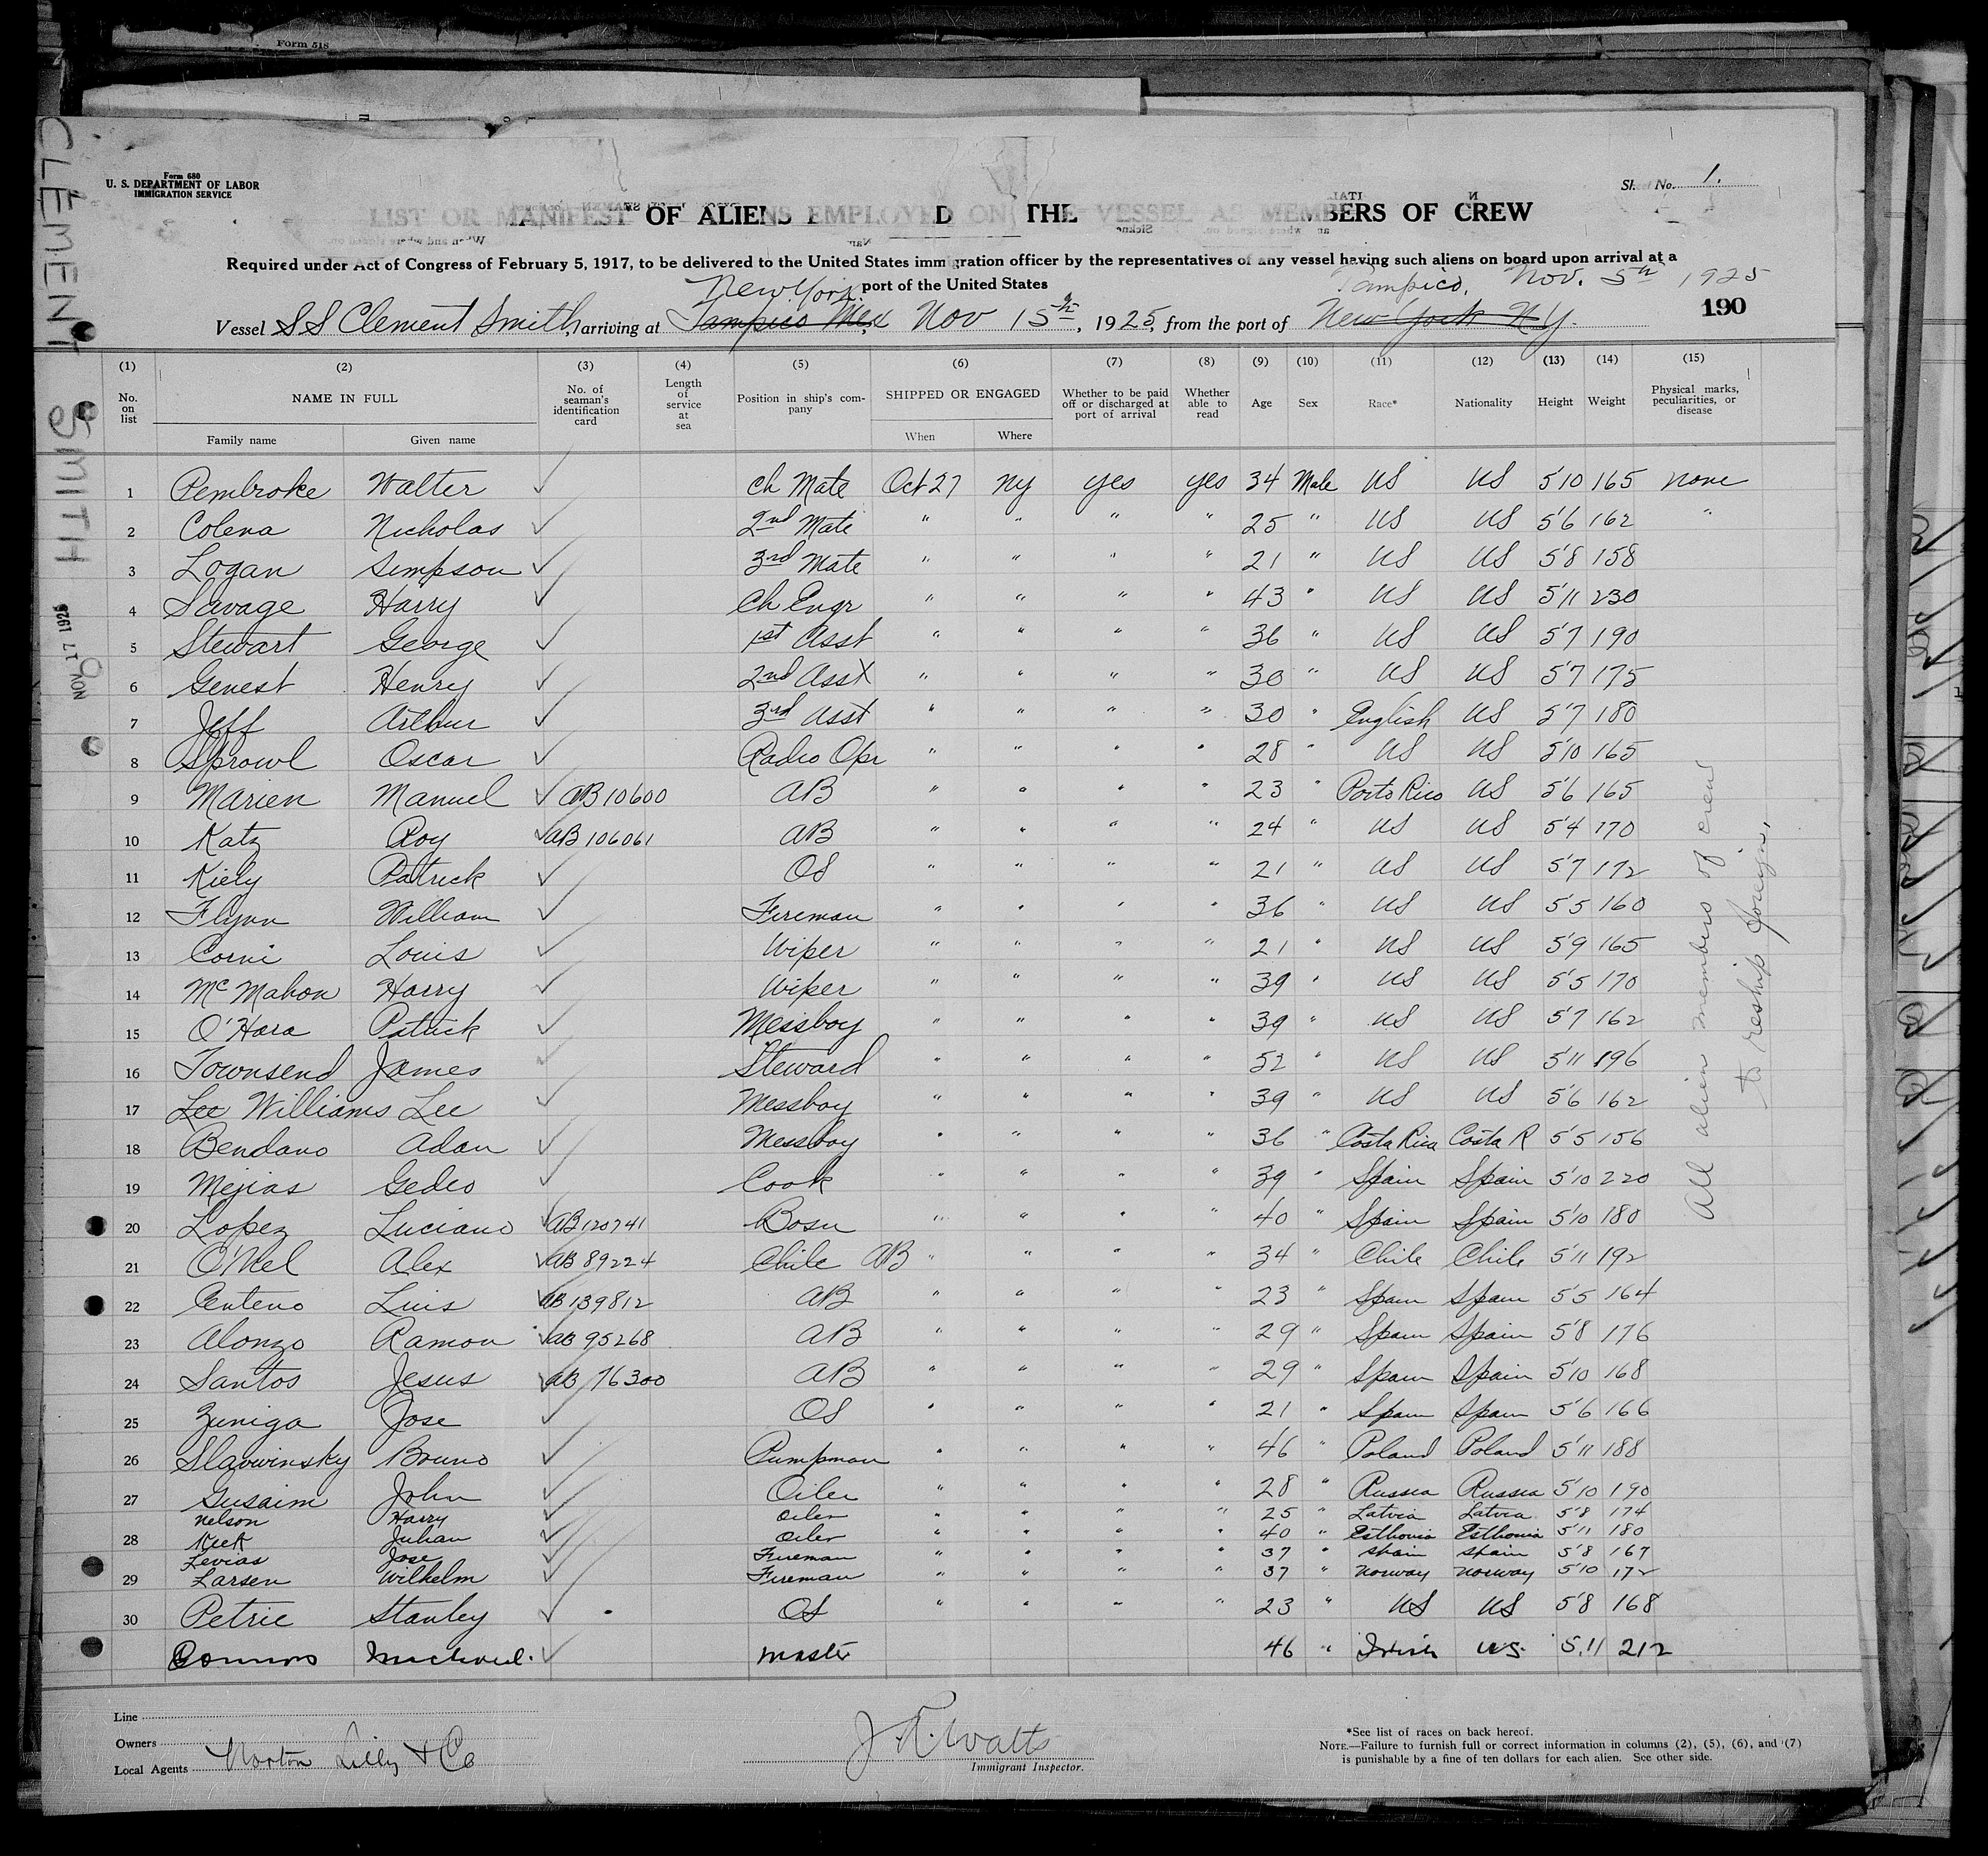 Form 518
CLEMENT SMITH
NOV 17 1925
Form 680
U. S. DEPARTMENT OF LABOR
IMMIGRATION SERVICE
Sheet No. 1.
LIST OR MANIFEST OF ALIENS EMPLOYED ON THE VESSEL AS MEMBERS OF CREW
Required under Act of Congress of February 5, 1917, to be delivered to the United States immigration officer by the representatives of any vessel having such aliens on board upon arrival at a
port of the United States
New York. Tampico, Nov. 5th 1925
Vessel SS Clement Smith, arriving at Tampico Mex Nov 15th, 1925, from the port of New York NY.
190
(1) (2) (3) (4) (5) (6) (7) (8) (9) (10) (11) (12) (13) (14) (15)
No. on list NAME IN FULL No. of seaman's identification card Length of service at sea Position in ship's company SHIPPED OR ENGAGED Whether to be paid off or discharged at port of arrival Whether able to read Age Sex Race* Nationality Height Weight Physical marks, peculiarities, or disease
Family name Given name When Where
1 Pembroke Walter ✓ Ch Mate Oct 27 NY yes yes 34 Male US US 5'10 165 none
2 Colena Nicholas ✓ 2nd Mate " " " " 25 " US US 5'6 162 "
3 Logan Simpson ✓ 3rd Mate " " " " 21 " US US 5'8 158
4 Savage Harry ✓ Ch Engr " " " " 43 " US US 5'11 230
5 Stewart George ✓ 1st Asst " " " " 36 " US US 5'7 190
6 Genest Henry ✓ 2nd Asst " " " " 30 " US US 5'7 175
7 Jeff Arthur ✓ 3rd Asst " " " " 30 " English US 5'7 180
8 Sprowl Oscar ✓ Radio Opr " " " " 28 " US US 5'10 165
9 Marien Manuel ✓ AB 10600 AB " " " " 23 " Porto Rico US 5'6 165
10 Katz Roy ✓ AB 106061 AB " " " " 24 " US US 5'4 170
11 Kiely Patrick ✓ OS " " " " 21 " US US 5'7 172
12 Flynn William ✓ Fireman " " " " 36 " US US 5'5 160
13 Corni Louis ✓ Wiper " " " " 21 " US US 5'9 165
14 McMahon Harry ✓ Wiper " " " " 39 " US US 5'5 170
15 O'Hara Patrick ✓ Messboy " " " " 39 " US US 5'7 162
16 Townsend James ✓ Steward " " " " 52 " US US 5'11 196
17 Lee Williams Lee ✓ Messboy " " " " 39 " US US 5'6 162
18 Bendano Adan ✓ Messboy " " " " 36 " Costa Rica Costa R 5'5 156
19 Mejias Gedeo ✓ Cook " " " " 39 " Spain Spain 5'10 220
20 Lopez Luciano ✓ AB 120741 Bosn " " " " 40 " Spain Spain 5'10 180
21 O'Nel Alex ✓ AB 89224 Chile AB " " " " 34 " Chile Chile 5'11 192
22 Centeno Luis AB 139812 AB " " " " 23 " Spain Spain 5'5 164
23 Alonzo Ramon ✓ AB 95268 AB " " " " 29 " Spain Spain 5'8 176
24 Santos Jesus ✓ AB 76300 AB " " " " 29 " Spain Spain 5'10 168
25 Zuniga Jose ✓ OS " " " " 21 " Spain Spain 5'6 166
26 Slavwinsky Bruno ✓ Pumpman " " " " 46 " Poland Poland 5'11 188
27 Gusaim John ✓ Oiler " " " " 28 " Russia Russia 5'10 190
Nelson Harry ✓ Oiler " " " " 25 " Latvia Latvia 5'8 174
28 Kuk Julian ✓ Oiler " " " " 40 " Esthonia Esthonia 5'11 180
Levias Jose ✓ Fireman " " " " 37 " Spain Spain 5'8 167
29 Larsen Wilhelm ✓ Fireman " " " " 37 " Norway Norway 5'10 172
30 Petrie Stanley ✓ OS " " " " 23 " US US 5'8 168
Connors Michael. ✓ Master 46 " Irish US 5.11 212
All alien members of crew
to reship foreign.
Line
Owners
Local Agents Norton Lilly & Co
Watts
Immigrant Inspector.
*See list of races on back hereof.
NOTE.—Failure to furnish full or correct information in columns (2), (5), (6), and (7)
is punishable by a fine of ten dollars for each alien. See other side.